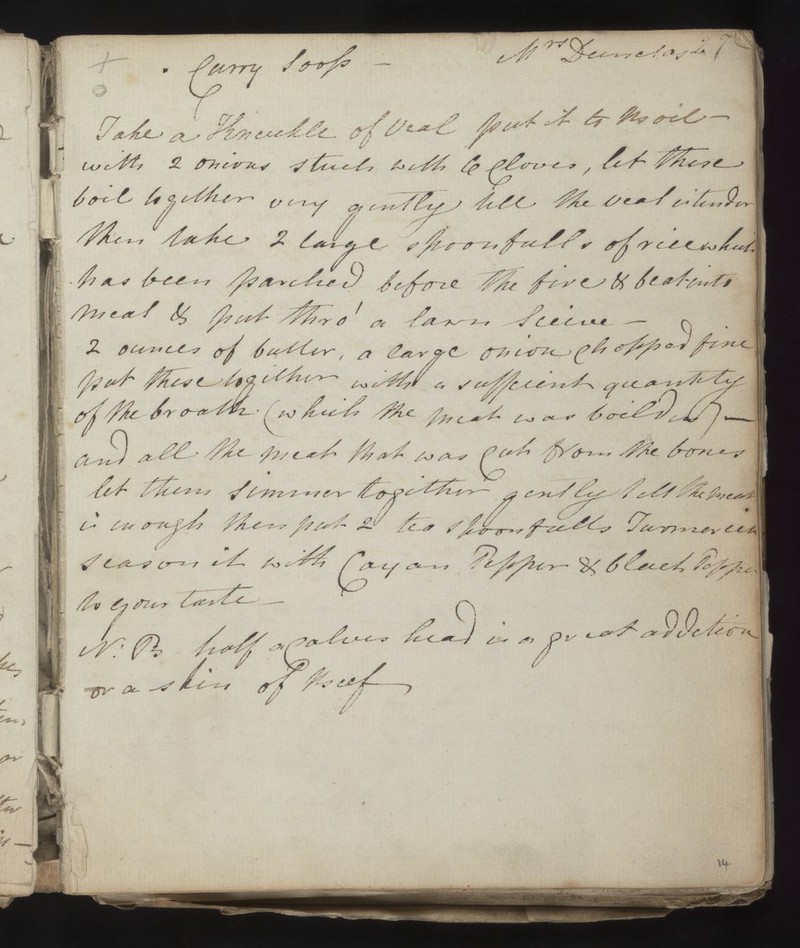 Curry Soop — Mrs
Take a Knuckle of Veal put it to boil —
with 2 onions stuck with 6 Cloves, let these
boil together very gently till the veal is tender
then take 2 large spoonfulls of rice which
has been parched before the fire & beat into
meal & put thro' a lawn Seive —
2 ounces of butter, a large onion chopped fine
put these together with a suffecient quantity
of the broath (which the meat was boild in) —
and all the meat that was Cut from the bones
let them simmer together gently till the meat
is enough then put 2 tea spoonfulls Turmerick
season it with Cayan Pepper & black Pepper
to your taste —
N: B half a Calves head is a great addition
or a skin of Beef
14